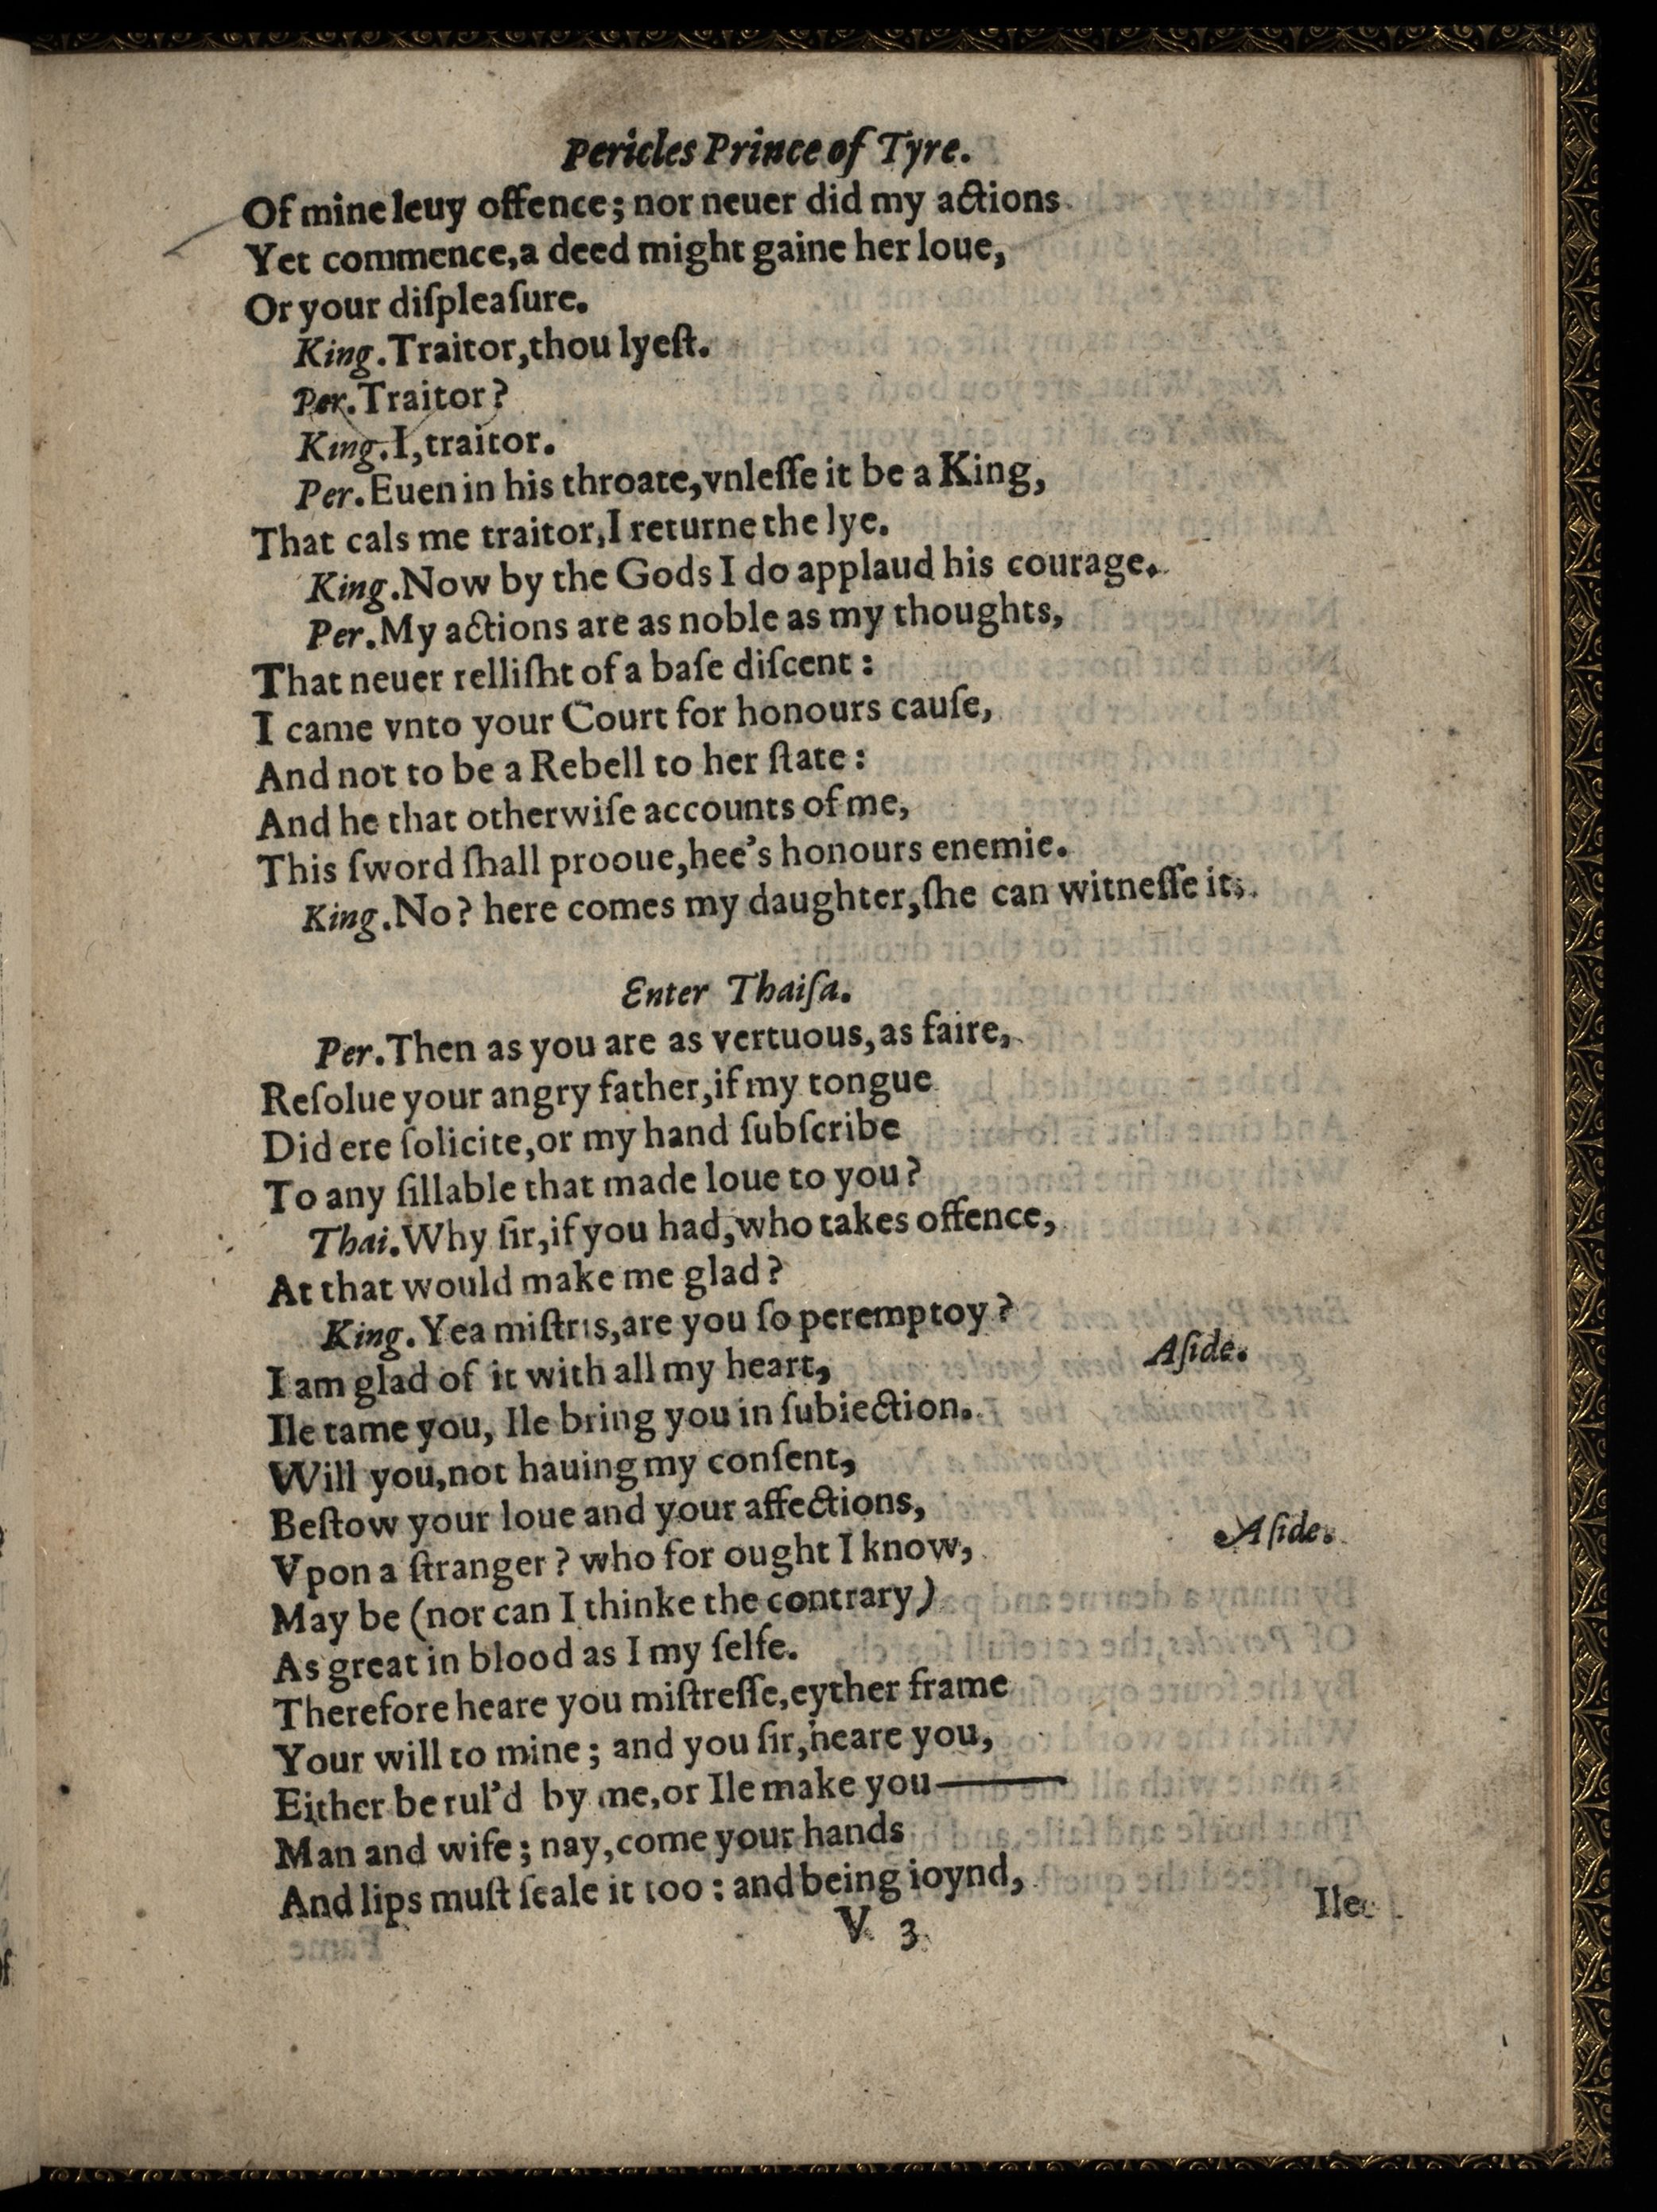 Pericles Prince of Tyre.
Of mine leuy offence; nor neuer did my actions
Yet commence,a deed might gaine her loue,
Or your diſpleaſure.
King.Traitor,thou lyeſt.
Per.Traitor?
King.I,traitor.
Per.Euen in his throate,vnleſſe it be a King,
That cals me traitor,I returne the lye.
King.Now by the Gods I do applaud his courage.
Per.My actions are as noble as my thoughts,
That neuer relliſht of a baſe diſcent:
I came vnto your Court for honours cauſe,
And not to be a Rebell to her ſtate:
And he that otherwiſe accounts of me,
This ſword ſhall prooue,hee's honours enemie.
King.No? here comes my daughter,ſhe can witneſſe it.
Enter Thaiſa.
Per.Then as you are as vertuous,as faire,
Reſolue your angry father,if my tongue
Did ere ſolicite,or my hand ſubſcribe
To any ſillable that made loue to you?
Thai.Why ſir,if you had,who takes offence,
At that would make me glad?
King.Yea miſtris,are you ſo peremptoy?
I am glad of it with all my heart, Aſide.
Ile tame you, Ile bring you in ſubiection.
Will you,not hauing my conſent,
Beſtow your loue and your affections,
Vpon a ſtranger? who for ought I know, Aſide.
May be (nor can I thinke the contrary)
As great in blood as I my ſelfe.
Therefore heare you miſtreſſe,eyther frame
Your will to mine; and you ſir,heare you,
Either be rul'd by me,or Ile make you———
Man and wife; nay,come your hands
And lips muſt ſeale it too: and being ioynd,
V 3
Ile